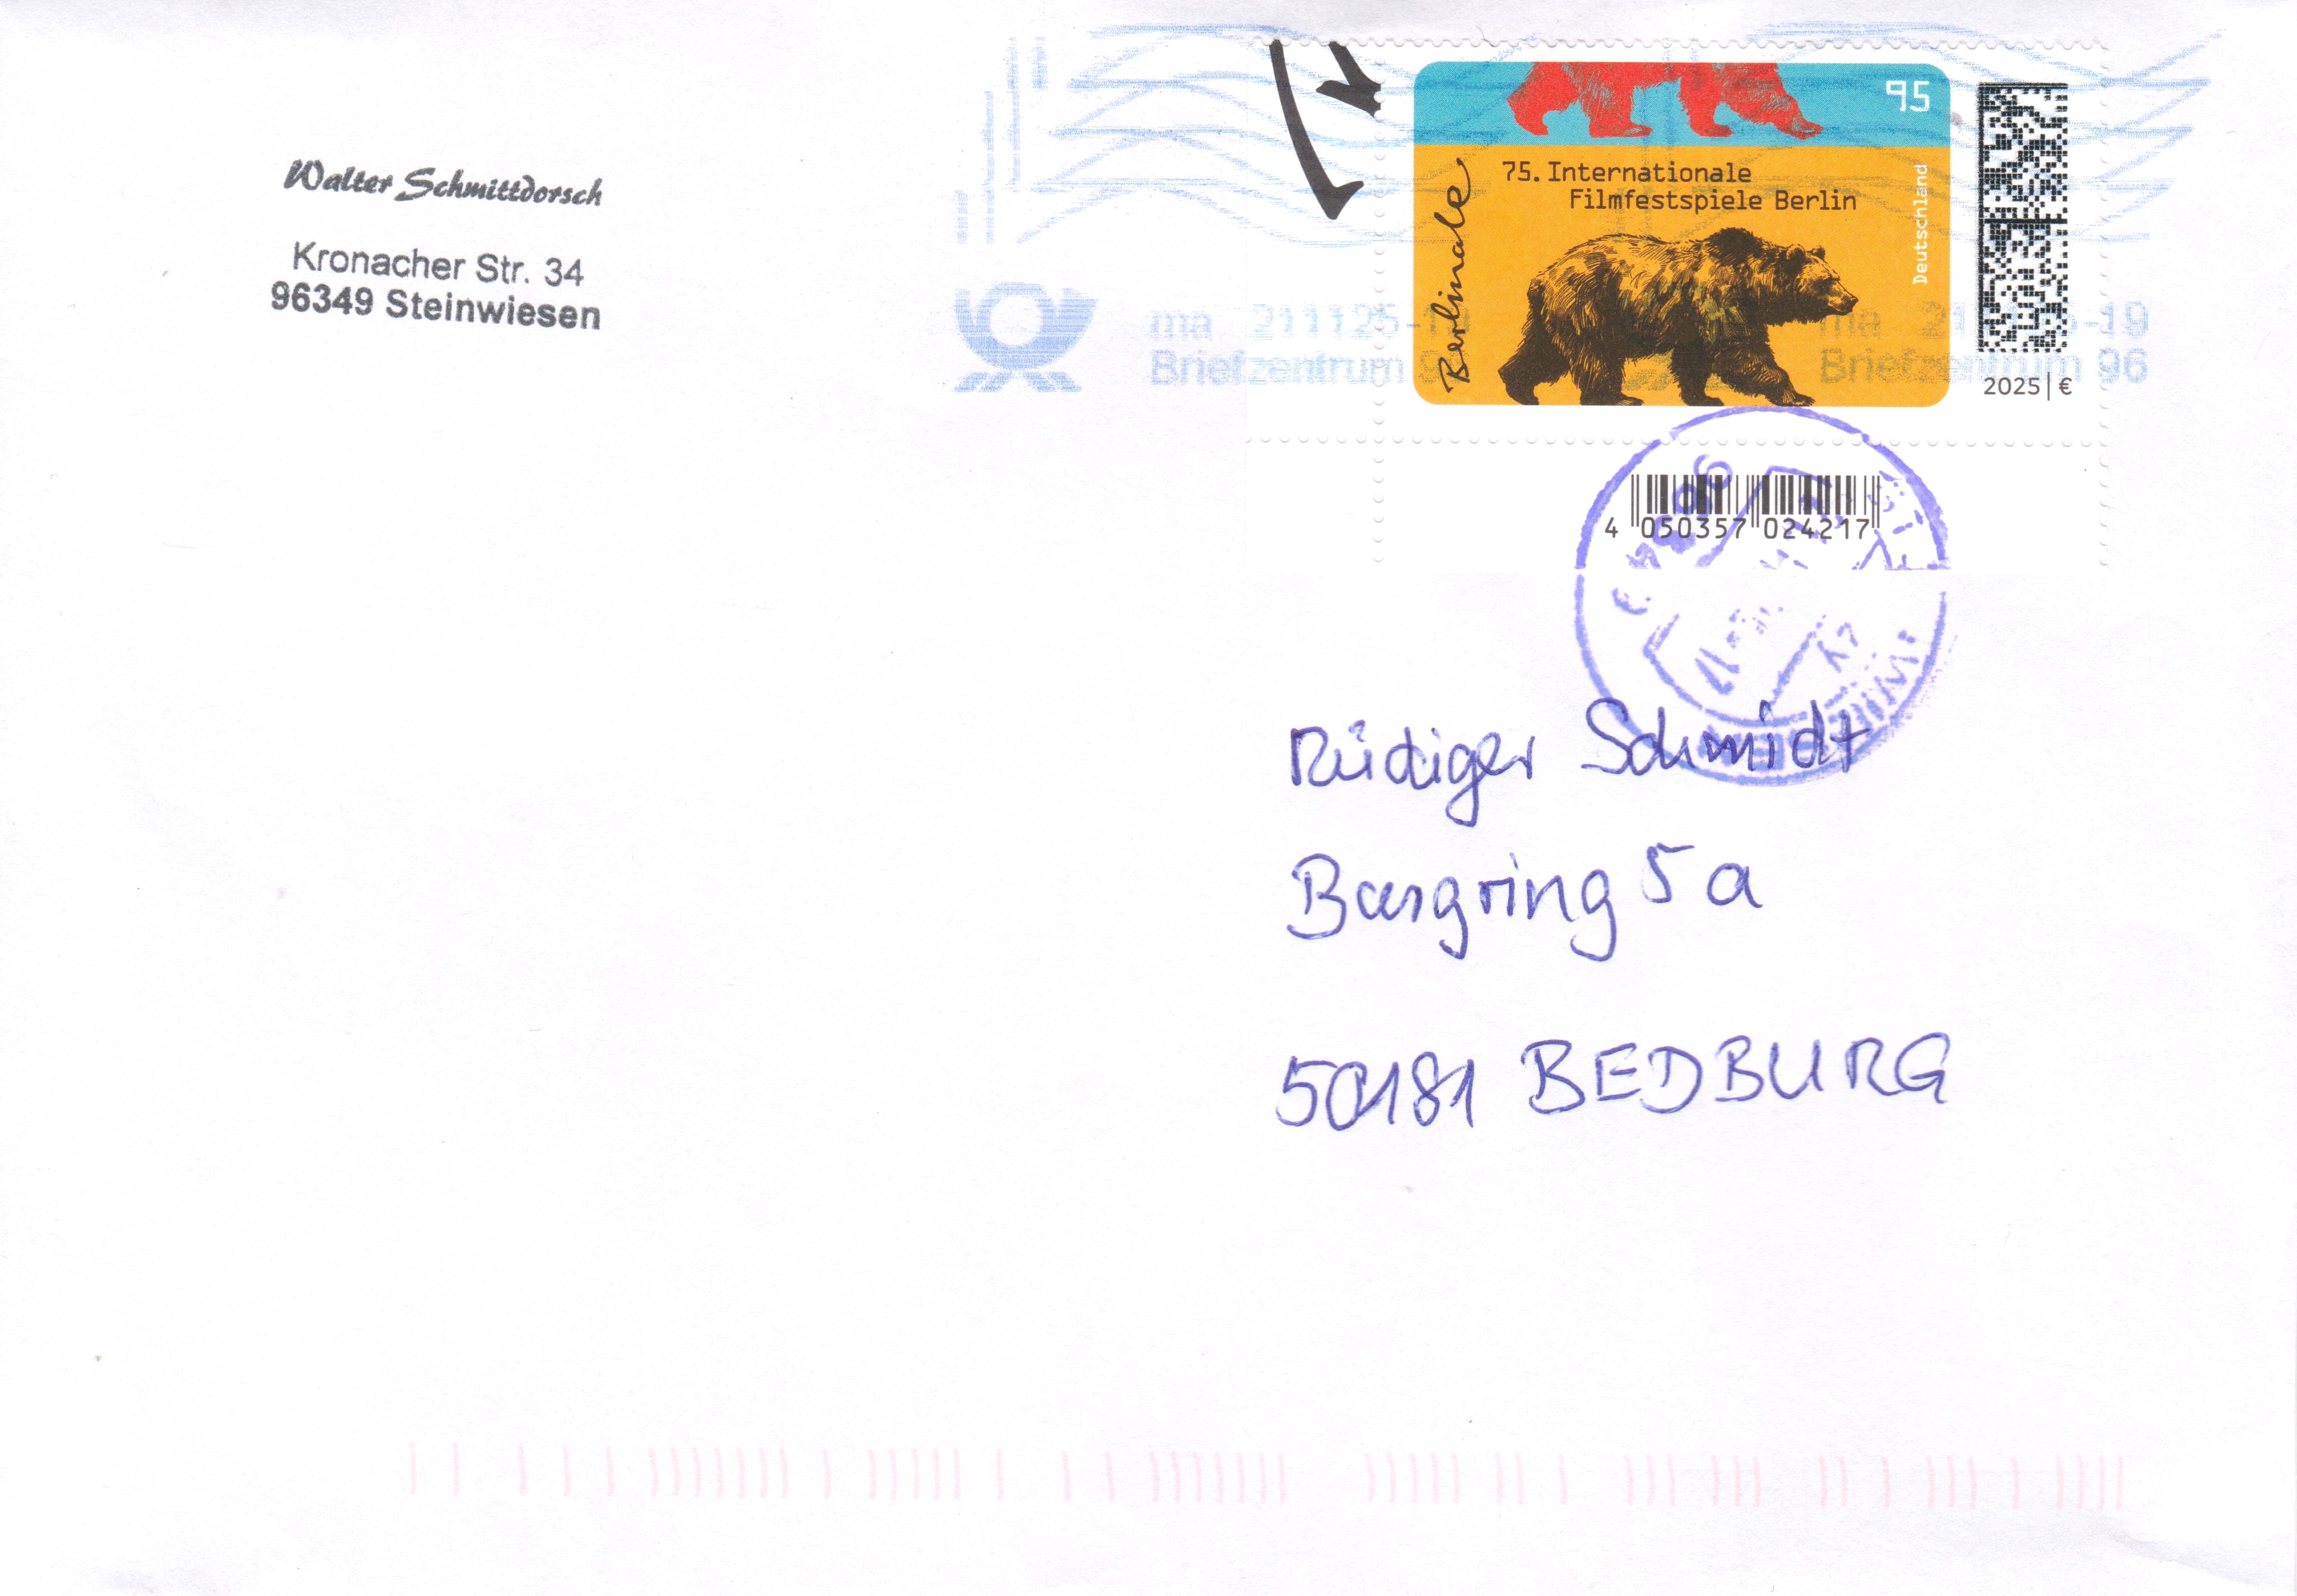 Walter Schmittdorsch
Kronacher Str. 34
96349 Steinwiesen
95
75. Internationale
Filmfestspiele Berlin
Berlinale
Deutschland
2025|€
ma 211125-19
Briefzentrum 96
4 050357 024217
Rüdiger Schmidt
Burgring 5a
50181 BEDBURG